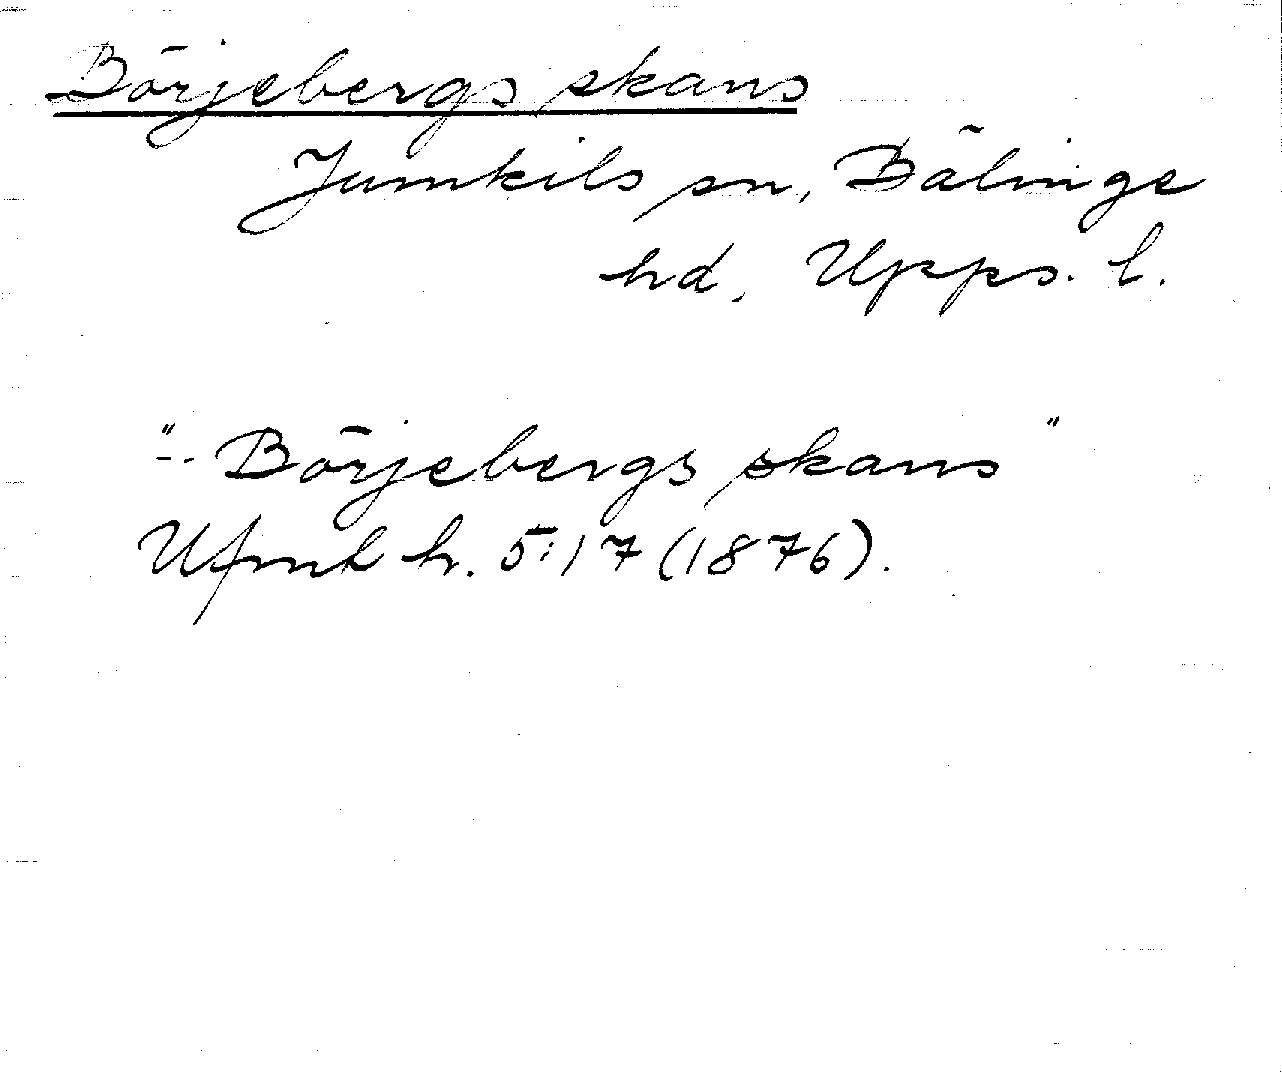 Börjebergs skans
Jumkils sn, Bälinge
hd, Upps. l.
"-. Börjebergs skans"
Ufmt h. 5:17 (1876).